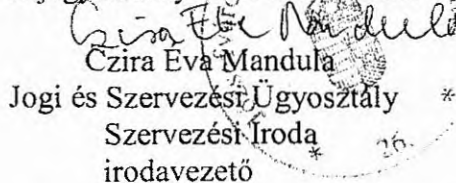 Czira Éva Mandula
Czira Éva Mandula
Jogi és Szervezési Ügyosztály *
Szervezési Iroda
* 26.
irodavezető